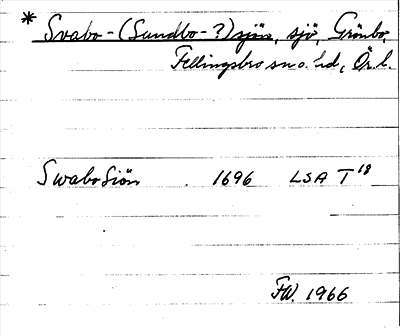 * Svabo-(Sundbo-?)sjön, sjö, Grönbo,
Fellingsbro sn o. hd, Ör. l.
Swabo Siön . 1696 LSA T 18
FW. 1966